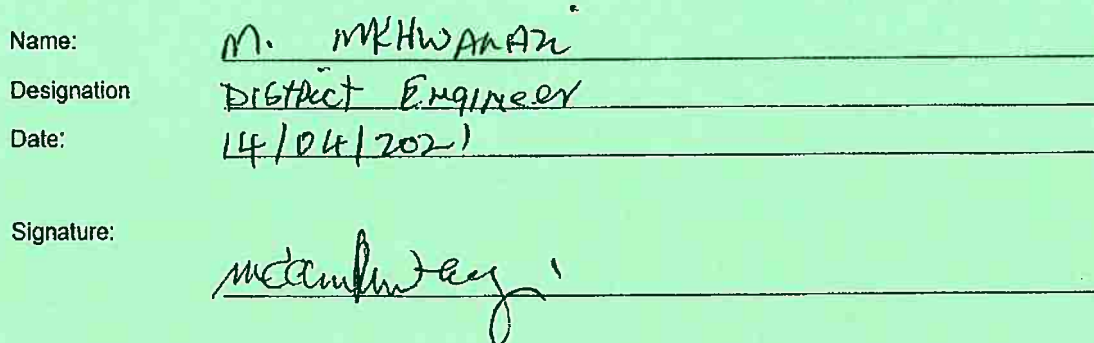 Name: M. MKHWANAZI
Designation District Engineer
Date: 14/04/2021
Signature: